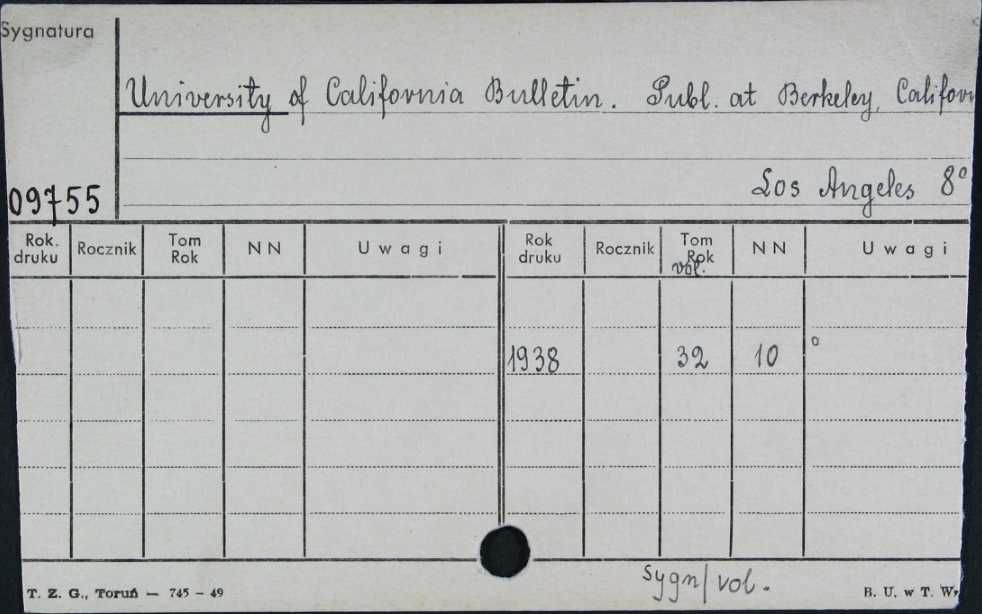 Sygnatura
University of California Bulletin. Publ. at Berkeley, Californ
Los Angeles 8°
09755
Rok. druku Rocznik Tom Rok NN Uwagi Rok druku Rocznik Tom Rok vol. NN Uwagi
1938 32 10 °
sygn/vol.
T. Z. G., Toruń — 745 - 49 B. U. w T. W